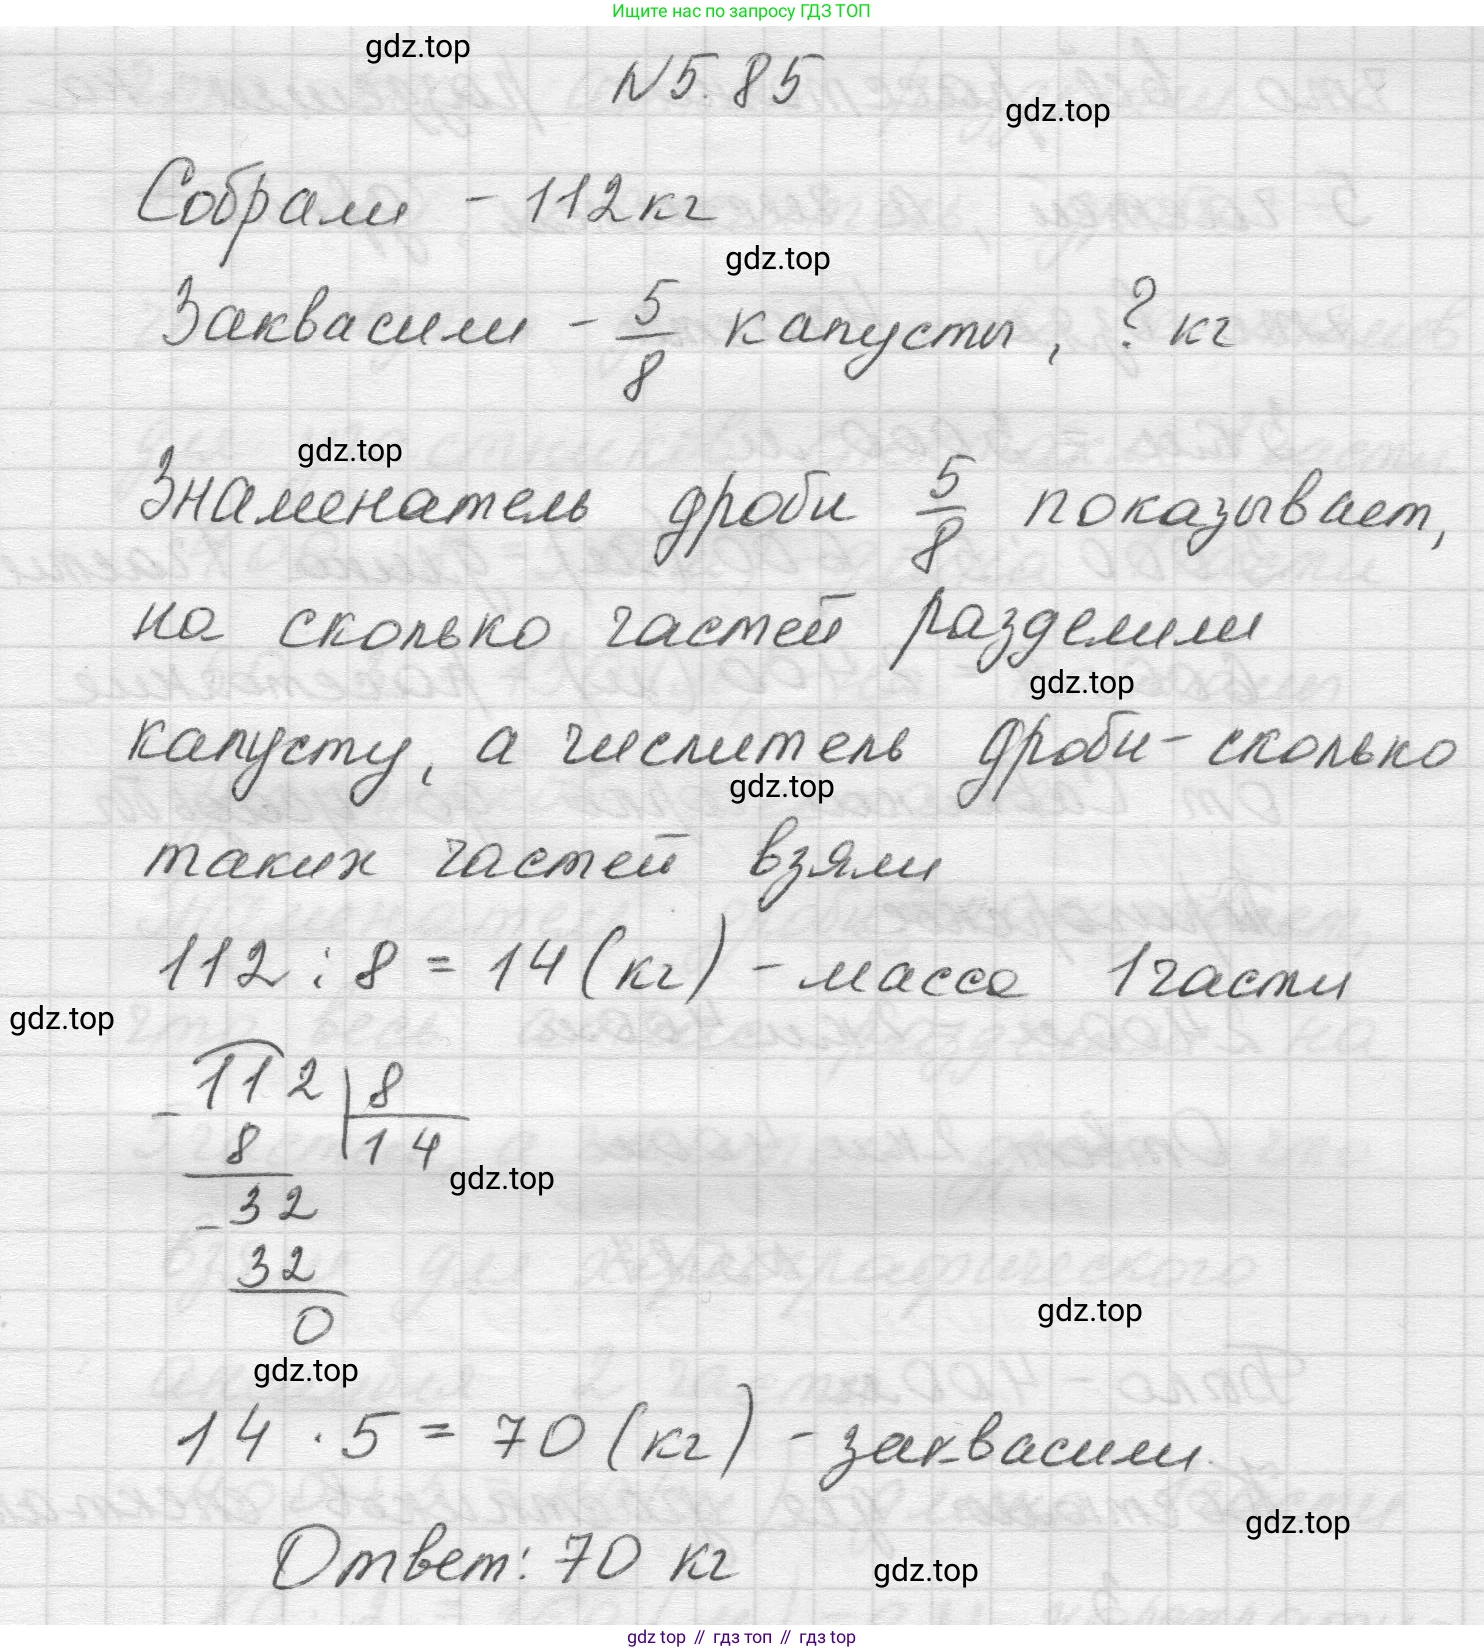 Ищите нас по запросу ГДЗ ТОП
gdz.top
№5.85
gdz.top
Собрали - 112 кг
gdz.top
Заквасили - 5/8 капусты, ? кг
gdz.top
Знаменатель дроби 5/8 показывает,
на сколько частей разделили
gdz.top
капусту, а числитель дроби - сколько
gdz.top
таких частей взяли
112 : 8 = 14 (кг) - масса 1 части
gdz.top
- 112 | 8
8 | 14
gdz.top
- 32
32
0
gdz.top
gdz.top
14 · 5 = 70 (кг) - заквасили.
gdz.top
Ответ: 70 кг
gdz.top
gdz top // гдз топ // гдз top